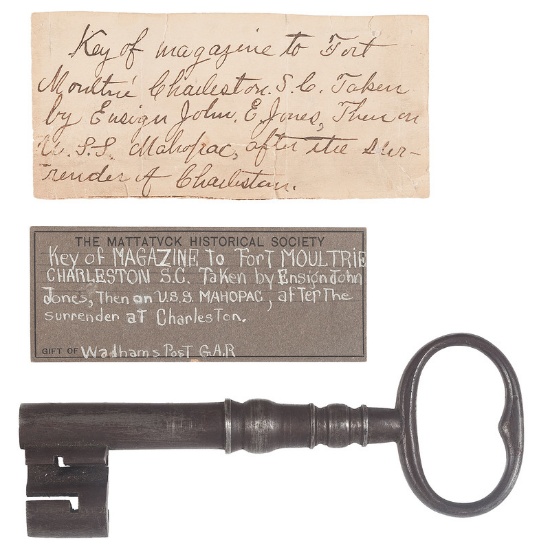 Key of magazine to Fort
Moultrie Charleston. S.C. Taken
by Ensign John. E. Jones, Then on
U.S.S. Mahopac, after the sur-
render of Charleston.
THE MATTATVCK HISTORICAL SOCIETY
Key of MAGAZINE To Fort MOULTRIE
CHARLESTON S.C. Taken by Ensign John
Jones, Then on U.S.S. MAHOPAC, after The
surrender at Charleston.
GIFT OF Wadhams Post G.A.R